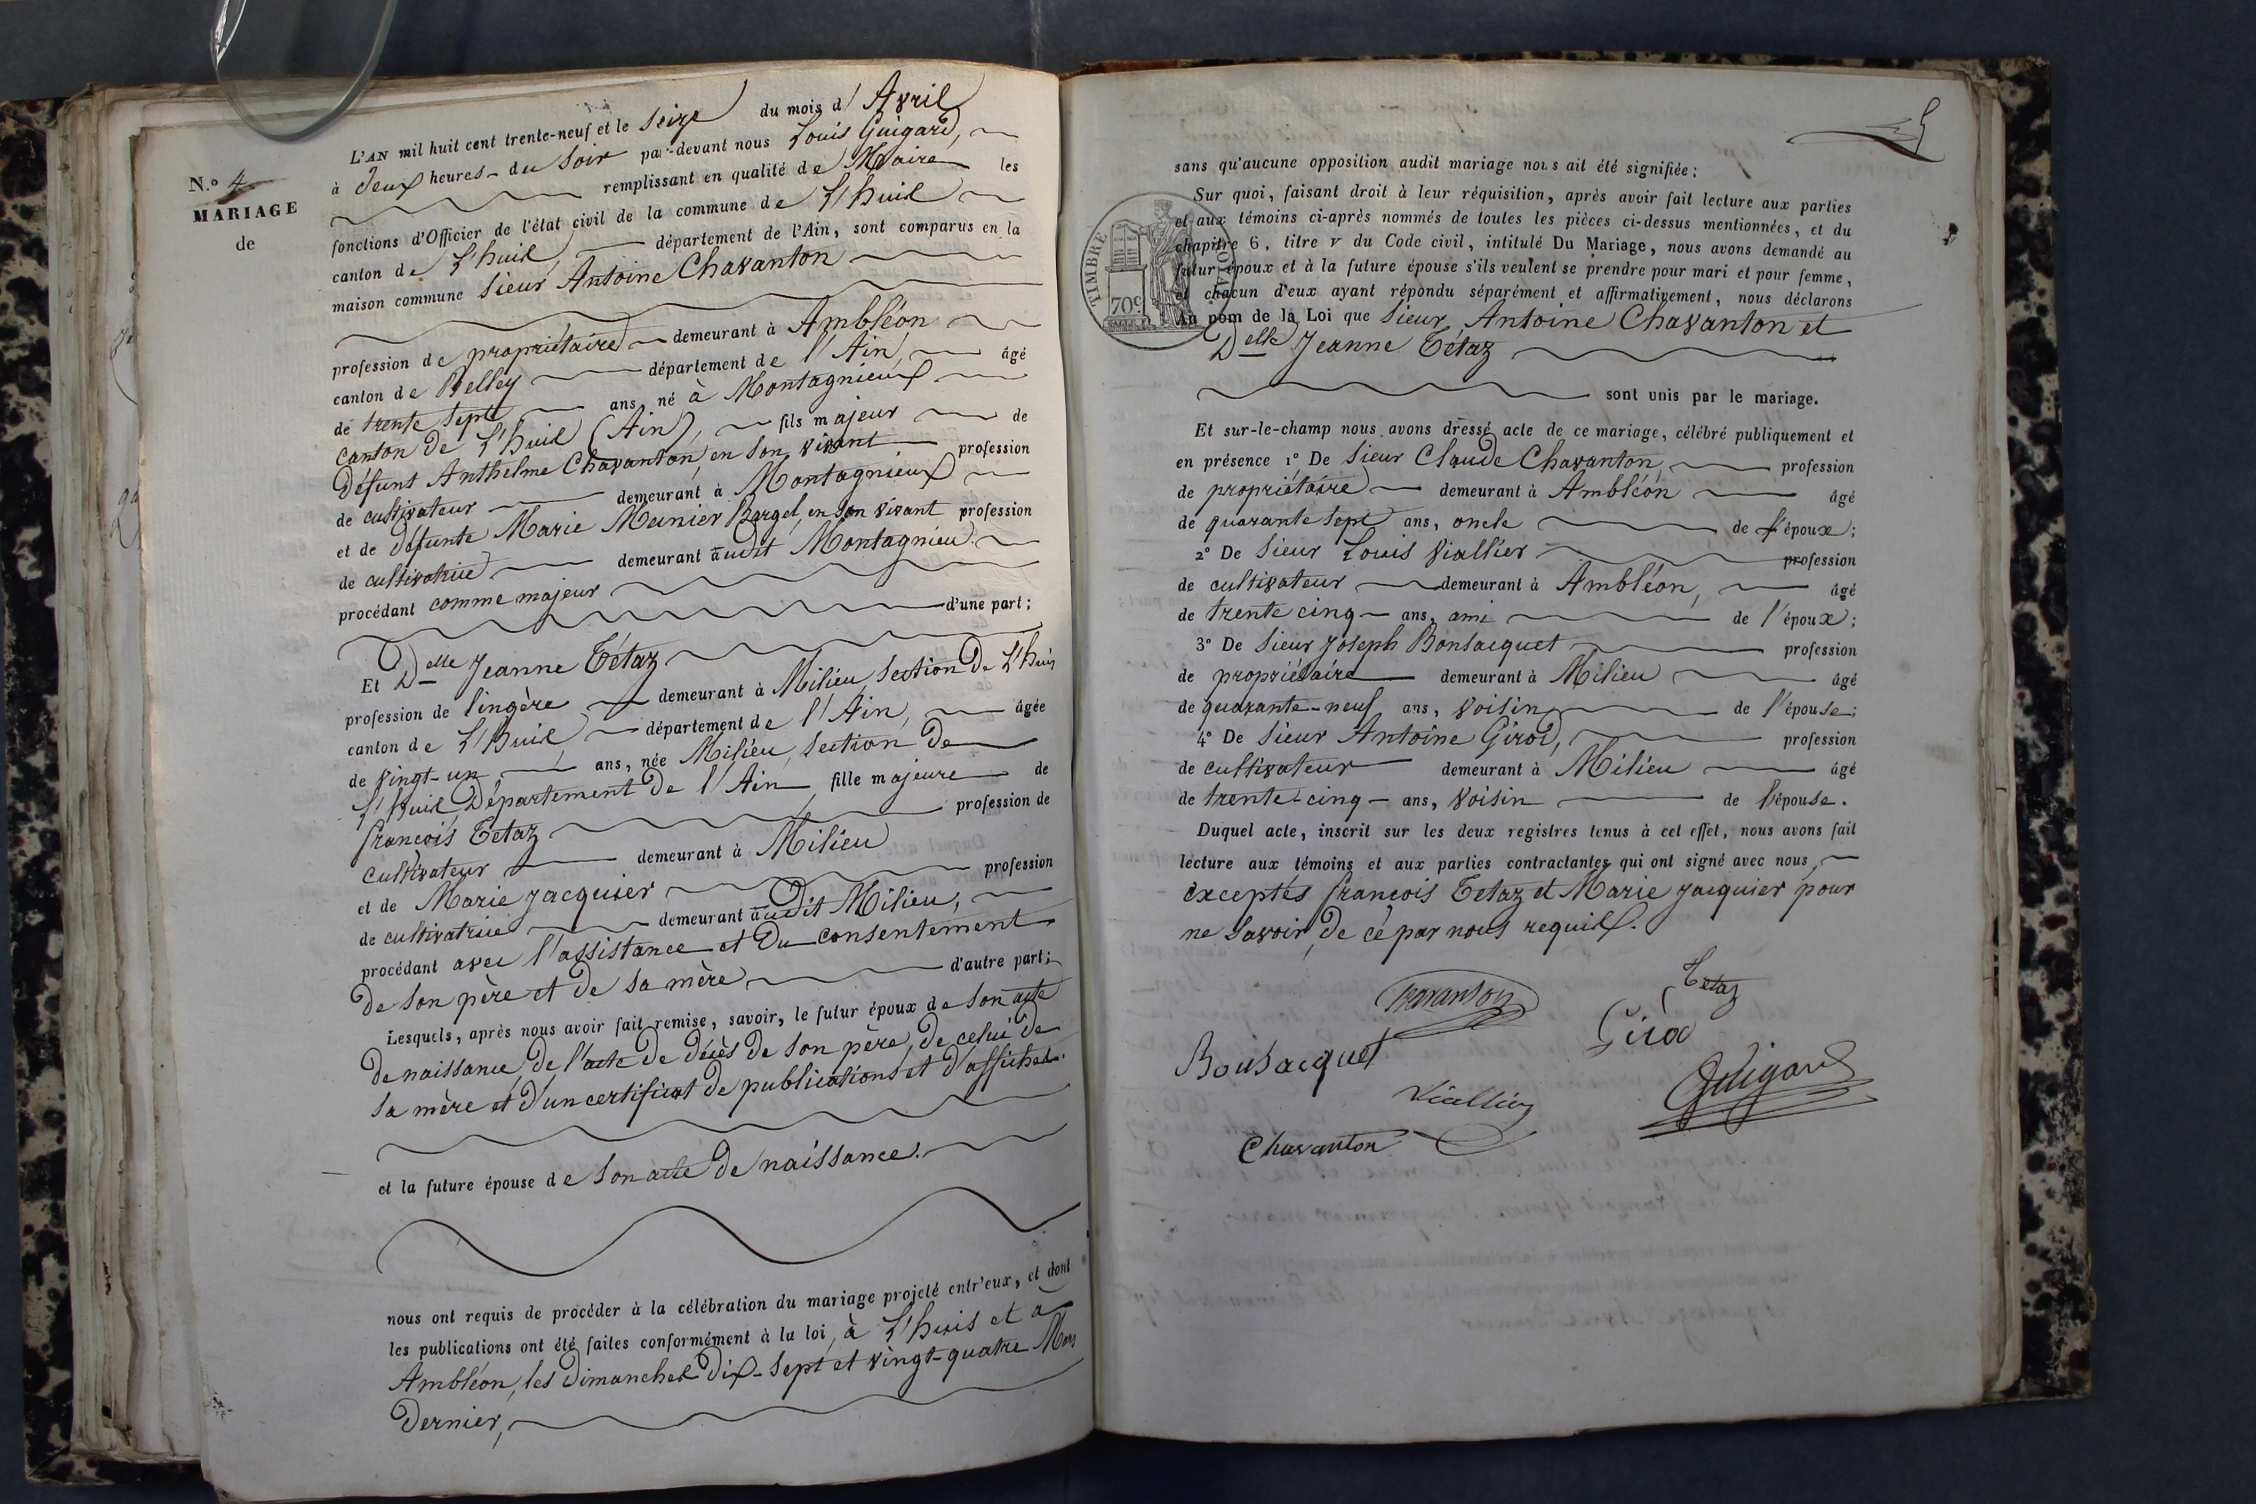 N.º 4
MARIAGE
de
L'AN mil huit cent trente-neuf et le Seize du mois d' Avril
à deux heures du Soir par-devant nous Louis Guigard,
remplissant en qualité de Maire les
fonctions d'Officier de l'état civil de la commune de L'huis
canton de L'huis, département de l'Ain, sont comparus en la
maison commune Sieur Antoine Chavanton
profession de propriétaire demeurant à Ambléon
canton de Belley département de l'Ain, âgé
de trente sept ans, né à Montagnieux
canton de L'huis (Ain), fils majeur de
défunt Anthelme Chavanton, en son vivant profession
de cultivateur demeurant à Montagnieux
et de défunte Marie Meunier Bargel, en son vivant profession
de cultivatrice demeurant audit Montagnieu.
procédant comme majeur
d'une part;
Et Delle Jeanne Tétaz
profession de lingère demeurant à Milieu Section de L'huis
canton de L'huis, département de l'Ain, âgée
de vingt-un, ans, née Milieu, Section de
L'huis, Département de l'Ain, fille majeure de
françois Tetaz profession de
cultivateur demeurant à Milieu
et de Marie Jacquier profession
de cultivatrice demeurant audit Milieu,
procédant avec l'assistance et du consentement
de son père et de sa mère d'autre part;
Lesquels, après nous avoir fait remise, savoir, le futur époux de son acte
de naissance, de l'acte de décès de son père, de celui de
sa mère et d'un certificat de publications et d'affiches.
et la future épouse de son acte de naissance.
nous ont requis de procéder à la célébration du mariage projeté entr'eux, et dont
les publications ont été faites conformément à la loi, à L'huis et à
Ambléon, les dimanches dix-sept et vingt-quatre Mars
dernier,
sans qu'aucune opposition audit mariage nous ait été signifiée;
Sur quoi, faisant droit à leur réquisition, après avoir fait lecture aux parties
et aux témoins ci-après nommés de toutes les pièces ci-dessus mentionnées, et du
chapitre 6, titre v du Code civil, intitulé Du Mariage, nous avons demandé au
futur époux et à la future épouse s'ils veulent se prendre pour mari et pour femme,
et chacun d'eux ayant répondu séparément et affirmativement, nous déclarons
au nom de la Loi que Sieur Antoine Chavanton et
Delle Jeanne Tétaz
sont unis par le mariage.
TIMBRE ROYAL
70c.
Et sur-le-champ nous avons dressé acte de ce mariage, célébré publiquement et
en présence 1º De Sieur Claude Chavanton, profession
de propriétaire demeurant à Ambléon âgé
de quarante sept ans, oncle de l'époux;
2º De Sieur Louis Viallier profession
de cultivateur demeurant à Ambléon, âgé
de trente cinq ans, ami de l'époux;
3º De Sieur Joseph Bonsacquet profession
de propriétaire demeurant à Milieu âgé
de quarante-neuf ans, voisin de l'épouse;
4º De Sieur Antoine Girod, profession
de cultivateur demeurant à Milieu âgé
de trente-cinq ans, voisin de l'épouse.
Duquel acte, inscrit sur les deux registres tenus à cet effet, nous avons fait
lecture aux témoins et aux parties contractantes qui ont signé avec nous,
exceptés françois Tetaz et Marie Jacquier pour
ne savoir, de ce par nous requis.
Chavanton
Tetaz
Girod
Bonsacquet
Guigard
Viallier
Chavanton